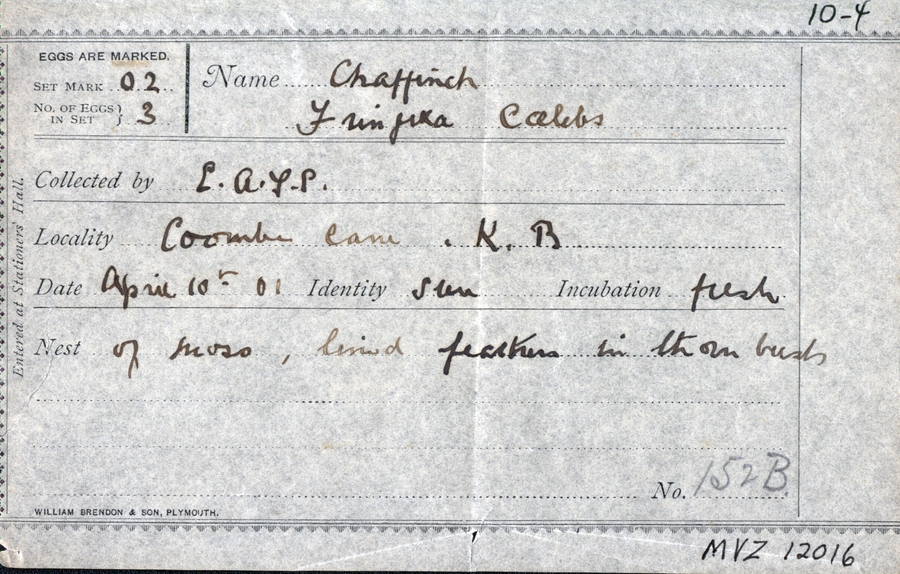 10-4
EGGS ARE MARKED.
SET MARK 02
NO. OF EGGS IN SET } 3
Name Chaffinch
Fringilla Cœlebs
Collected by
Locality Coombe Lane . K. B
Date April 10th 01 Identity seen Incubation fresh
Nest of moss, lined feathers in thorn bush
No. 152B
WILLIAM BRENDON & SON, PLYMOUTH.
Entered at Stationers' Hall.
MVZ 12016